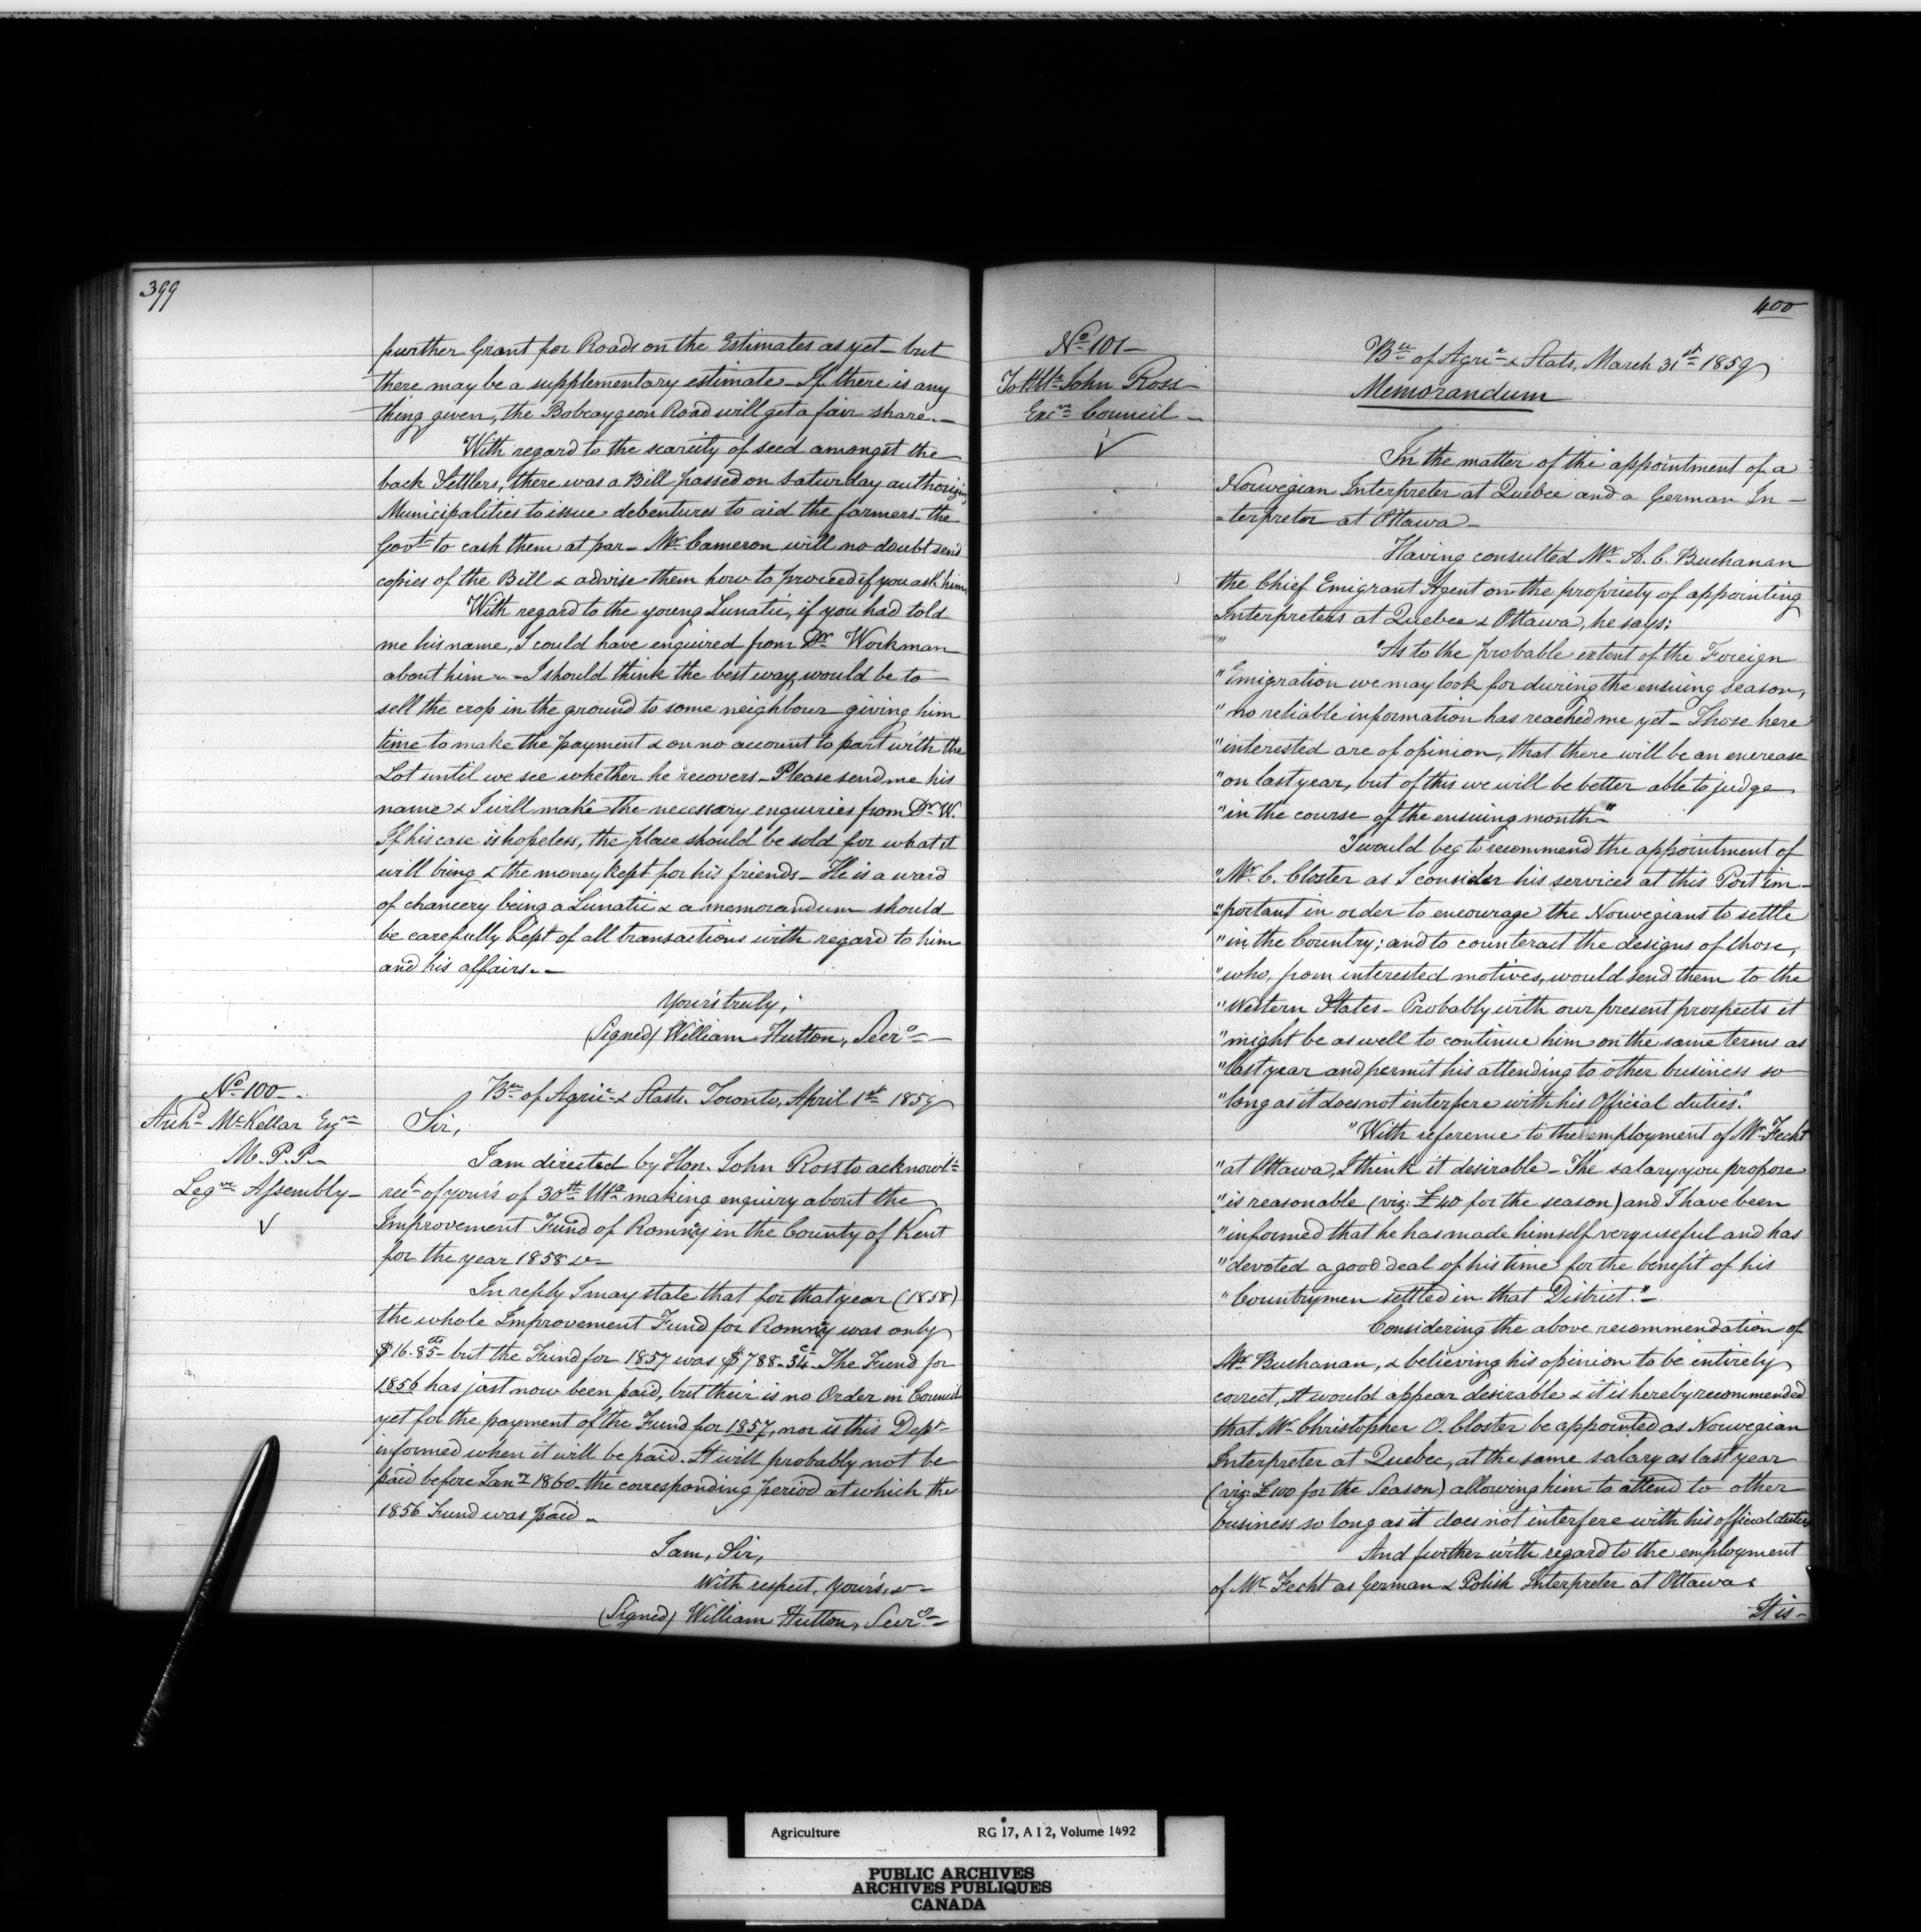 399
further Grant for Roads on the Estimates as yet – but
there may be a supplementary estimate – If there is any
thing given, the Bobcaygeon Road will get a fair share. –
With regard to the scarcity of seed amongst the
back Settlers, there was a Bill passed on Saturday authorizing
Municipalities to issue debentures to aid the farmers – the
Govt. to cash them at par – Mr. Cameron will no doubt send
copies of the Bill & advise them how to proceed if you ask him
With regard to the young Lunatic, if you had told
me his name, I could have enquired from Dr. Workman
about him – – I should think the best way would be to
sell the crop in the ground to some neighbour giving him
time to make the payment & on no account to part with the
Lot until we see whether he recovers – Please send me his
name & I will make the necessary enquiries from Dr. W.
If his case is hopeless, the place should be sold for what it
will bring & the money kept for his friends – He is a ward
of chancery being a Lunatic & a memorandum should
be carefully kept of all transactions with regard to him
and his affairs. –
Your's truly,
(Signed) William Hutton, Secry. –
No. 100 – .
Archd. McKellar Esqre.
M.P.P. –
Legve. Assembly –
Bu. of Agric. & Stats. Toronto, April 1st. 1859
Sir,
I am directed by Hon. John Ross to acknowl.
rect. of your's of 30th. Ulto. making enquiry about the
Improvement Fund of Romney in the County of Kent
for the year 1858 &c –
In reply I may state that for that year (1858)
the whole Improvement Fund for Romney was only
$16.85cts – but the Fund for 1857 was $788.34cts. The Fund for
1856 has just now been paid, but their is no Order in Council
yet for the payment of the Fund for 1857, nor is this Dept.
informed when it will be paid. It will probably not be
paid before Jany. 1860 – the corresponding period at which the
1856 Fund was paid –
I am, Sir,
With respect, Your's, &c –
(Signed) William Hutton, Secry. –
400
No. 101 –
To Hble. John Ross –
Exve. Council –
Bu. of Agric. & Stats, March 31st. 1859
Memorandum
In the matter of the appointment of a
Norwegian Interpreter at Quebec and a German In –
– terpreter at Ottawa –
Having consulted Mr. A. C. Buchanan
the Chief Emigrant Agent on the propriety of appointing
Interpreters at Quebec & Ottawa, he says:
" "As to the probable extent of the Foreign
"Emigration we may look for during the ensuing season,
"no reliable information has reached me yet – Those here
"interested are of opinion, that there will be an encrease
"on last year, but of this we will be better able to judge
"in the course of the ensuing month –"
"I would beg to recommend the appointment of
"Mr. C. Closter as I consider his services at this Port im –
"portant in order to encourage the Norwegians to settle
"in the Country; and to counteract the designs of those,
"who, from interested motives, would send them to the
"Western States – Probably with our present prospects it
"might be as well to continue him on the same terms as
"last year and permit his attending to other business so
"long as it does not interfere with his Official duties."
"With reference to the employment of Mr. Fecht
"at Ottawa, I think it desirable – The salary you propose
"is reasonable (viz: £40 for the season) and I have been
"informed that he has made himself very useful and has
"devoted a good deal of his time for the benefit of his
"Countrymen settled in that District." –
Considering the above recommendation of
Mr. Buchanan, & believing his opinion to be entirely
correct, It would appear desirable & it is hereby recommended
that Mr. Christopher O. Closter be appointed as Norwegian
Interpreter at Quebec, at the same salary as last year
(viz: £100 for the Season) allowing him to attend to other
business so long as it does not interfere with his official duties
And further with regard to the employment
of Mr. Fecht as German & Polish Interpreter at Ottawa
It is –
Agriculture RG 17, A I 2, Volume 1492
PUBLIC ARCHIVES
ARCHIVES PUBLIQUES
CANADA